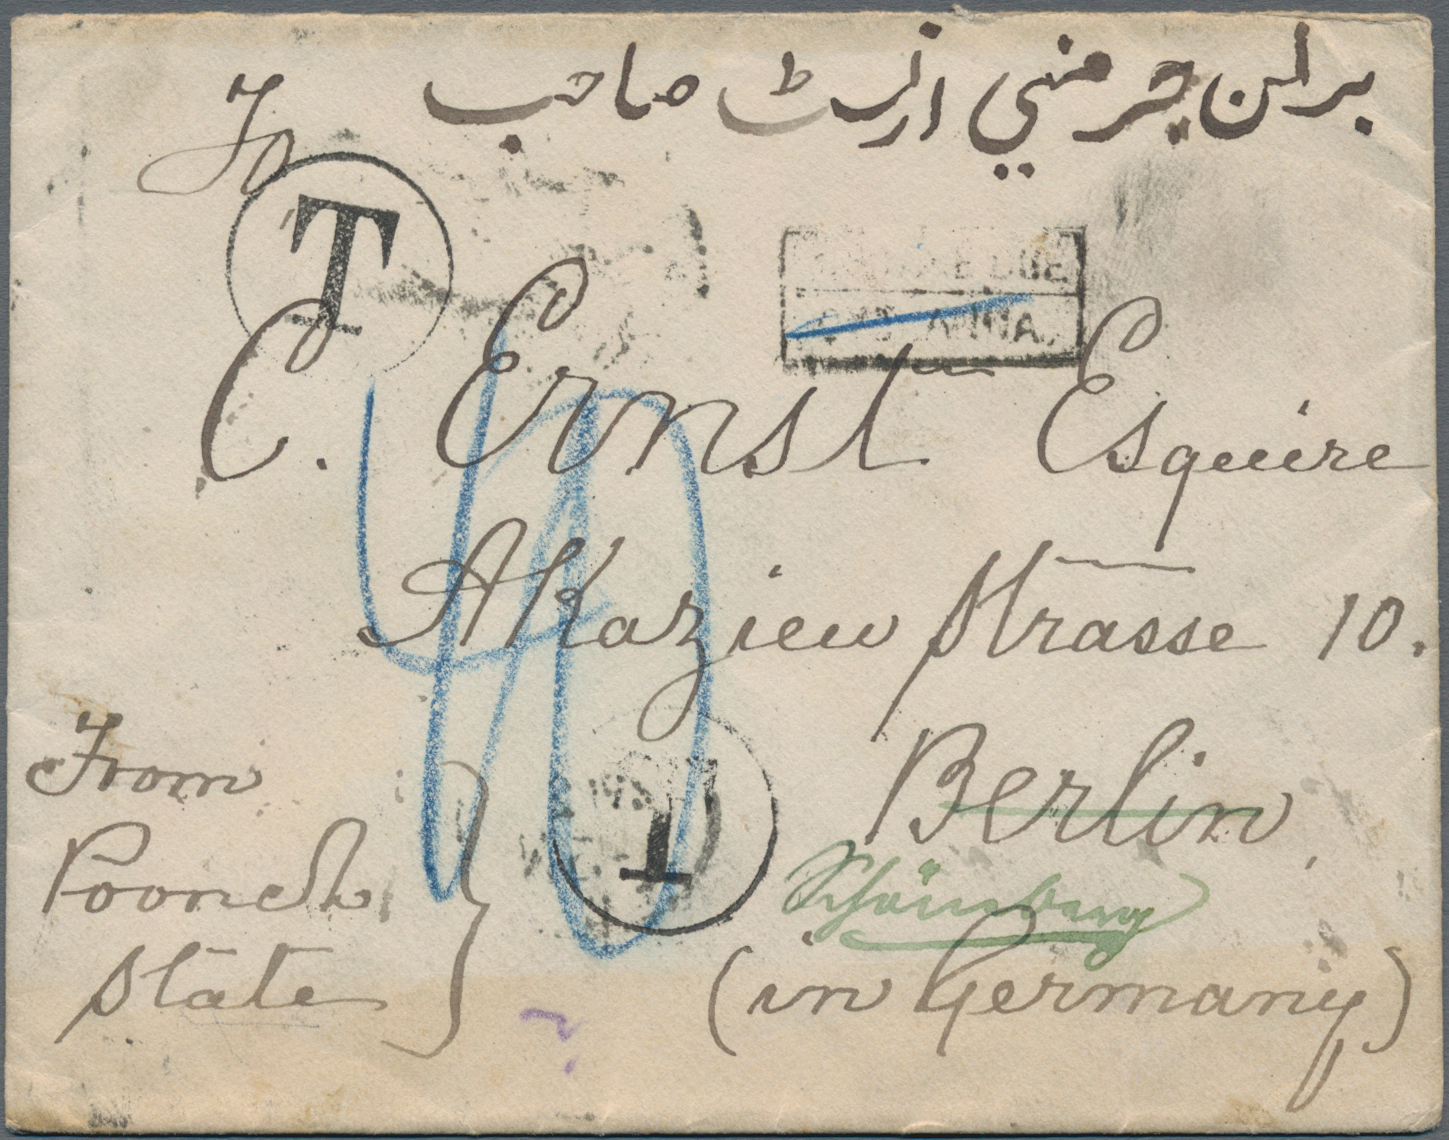 برلن جرمني ارنسٹ صاحب
To
T
DUE
ANNA
C. Ernst Esquire
40
Akazien Strasse 10.
From
Poonch
state
Berlin,
T
Schöneberg
(in Germany)